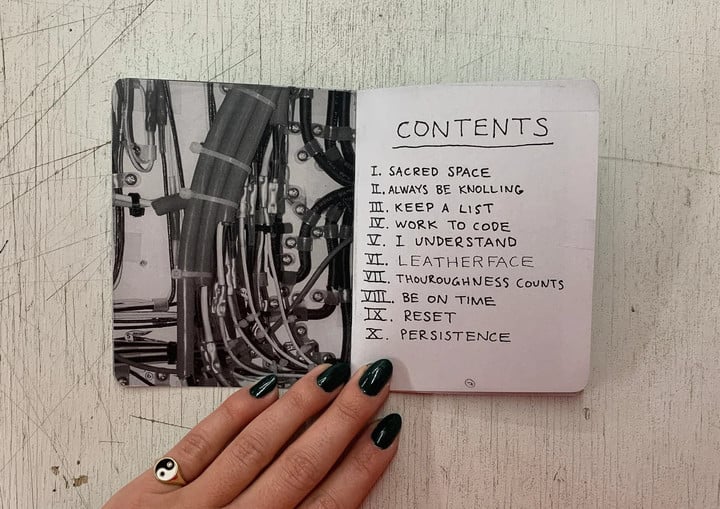 CONTENTS
I. SACRED SPACE
II. ALWAYS BE KNOLLING
III. KEEP A LIST
IV. WORK TO CODE
V. I UNDERSTAND
VI. LEATHERFACE
VII. THOUROUGHNESS COUNTS
VIII. BE ON TIME
IX. RESET
X. PERSISTENCE